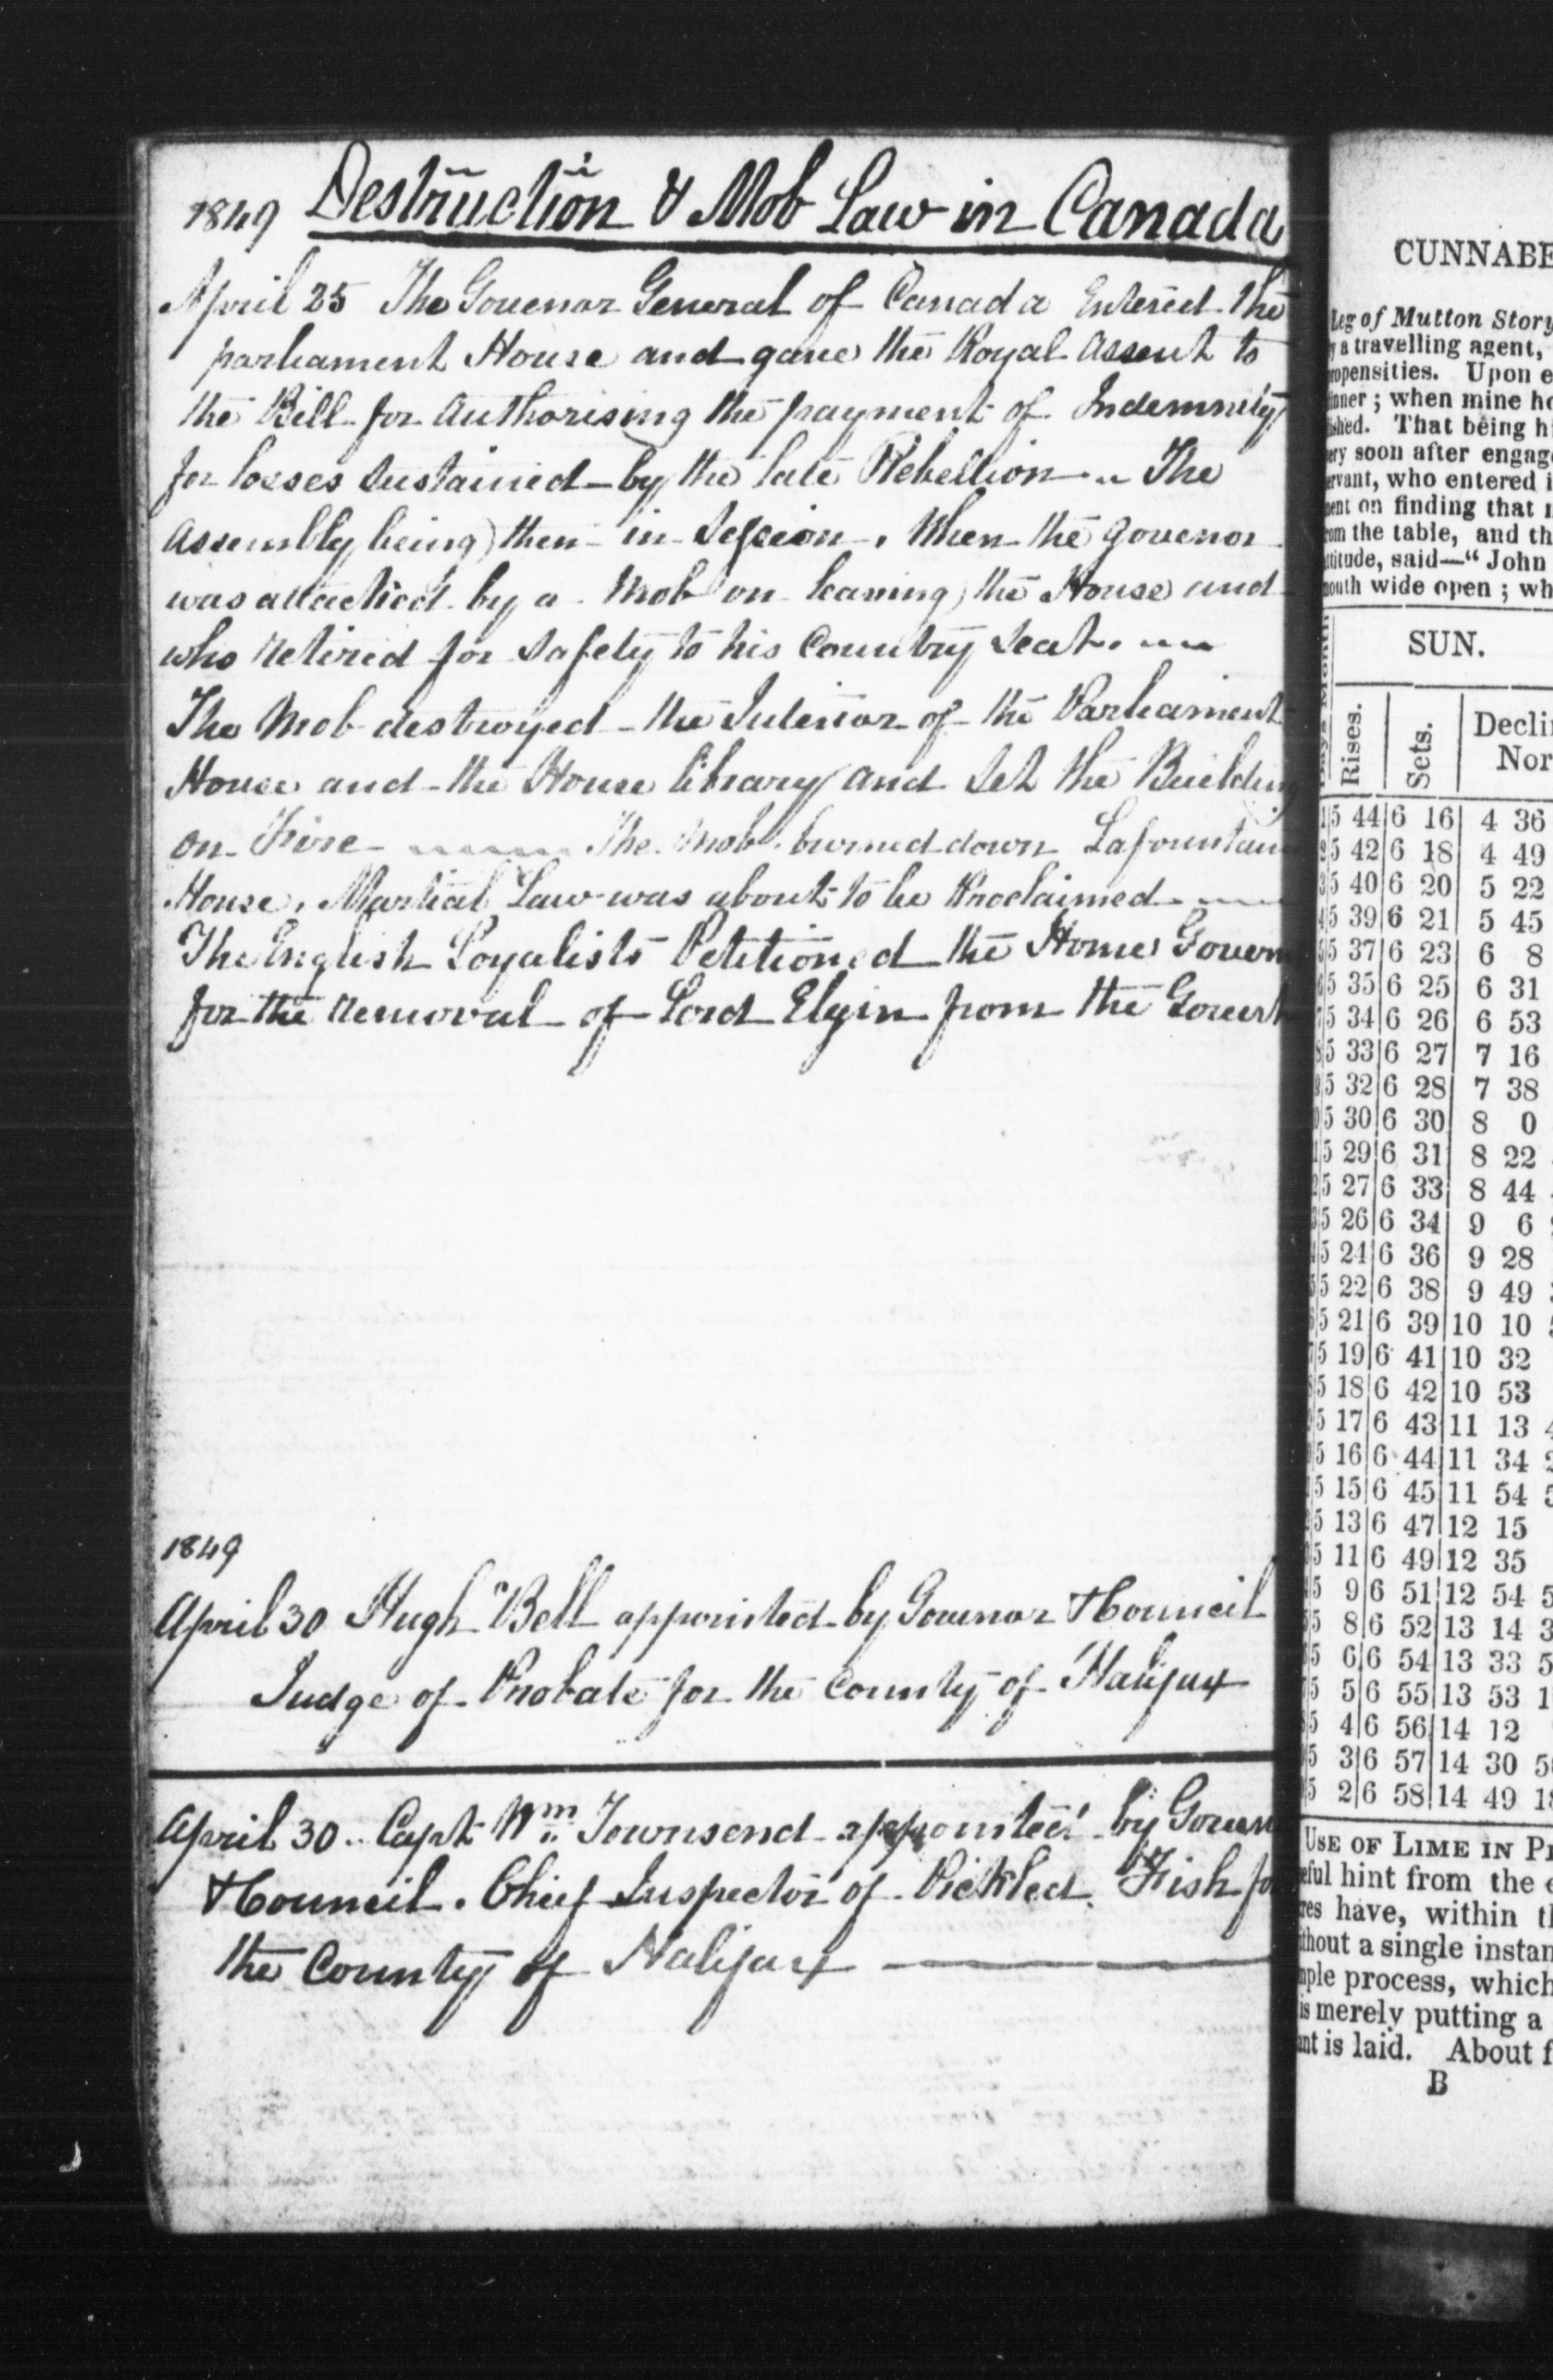 1849 Destruction & Mob Law in Canada
April 25 The Govenor General of Canada Entered the
parliament House and gave the Royal Assent to
the Bill for Authorising the payment of Indemnity
for losses sustained by the late Rebellion .. The
Assembly being then in Session, When the Govenor
was attacked by a Mob on leaving the House and
who retired for safety to his Country Seat.
The Mob destroyed the Interior of the Parliament
House and the House library and set the Building
on Fire The Mob burned down Lafountain
House, Martial Law was about to be Proclaimed
The English Loyalists Petitioned the Home Govern
for the removal of Lord Elgin from the Govert
1849
April 30 Hugh Bell appointed by Govenor & Council
Judge of Probate for the County of Halifax
April 30 .. Capt. Wm Townsend appointed by Govern
& Council. Chief Inspector of Pickled Fish fo
the County of Halifax
CUNNABE
Leg of Mutton Story
y a travelling agent,
ropensities. Upon e
inner; when mine ho
ished. That being hi
ery soon after engage
ervant, who entered i
ment on finding that
rom the table, and th
ttitude, said—“ John
mouth wide open; wh
SUN.
Days Month
Rises.
Sets.
Declin
Nor
1 5 44 6 16 4 36
2 5 42 6 18 4 49
3 5 40 6 20 5 22
4 5 39 6 21 5 45
5 5 37 6 23 6 8
6 5 35 6 25 6 31
7 5 34 6 26 6 53
8 5 33 6 27 7 16
9 5 32 6 28 7 38
0 5 30 6 30 8 0
1 5 29 6 31 8 22
2 5 27 6 33 8 44
3 5 26 6 34 9 6
4 5 24 6 36 9 28
5 5 22 6 38 9 49
6 5 21 6 39 10 10
7 5 19 6 41 10 32
8 5 18 6 42 10 53
9 5 17 6 43 11 13 4
0 5 16 6 44 11 34 2
1 5 15 6 45 11 54 5
2 5 13 6 47 12 15
3 5 11 6 49 12 35
4 5 9 6 51 12 54 5
5 5 8 6 52 13 14 3
6 5 6 6 54 13 33 5
7 5 5 6 55 13 53 1
8 5 4 6 56 14 12
9 5 3 6 57 14 30 5
0 5 2 6 58 14 49 1
USE OF LIME IN P
eful hint from the e
res have, within th
ithout a single instan
mple process, which
is merely putting a
ant is laid. About f
B